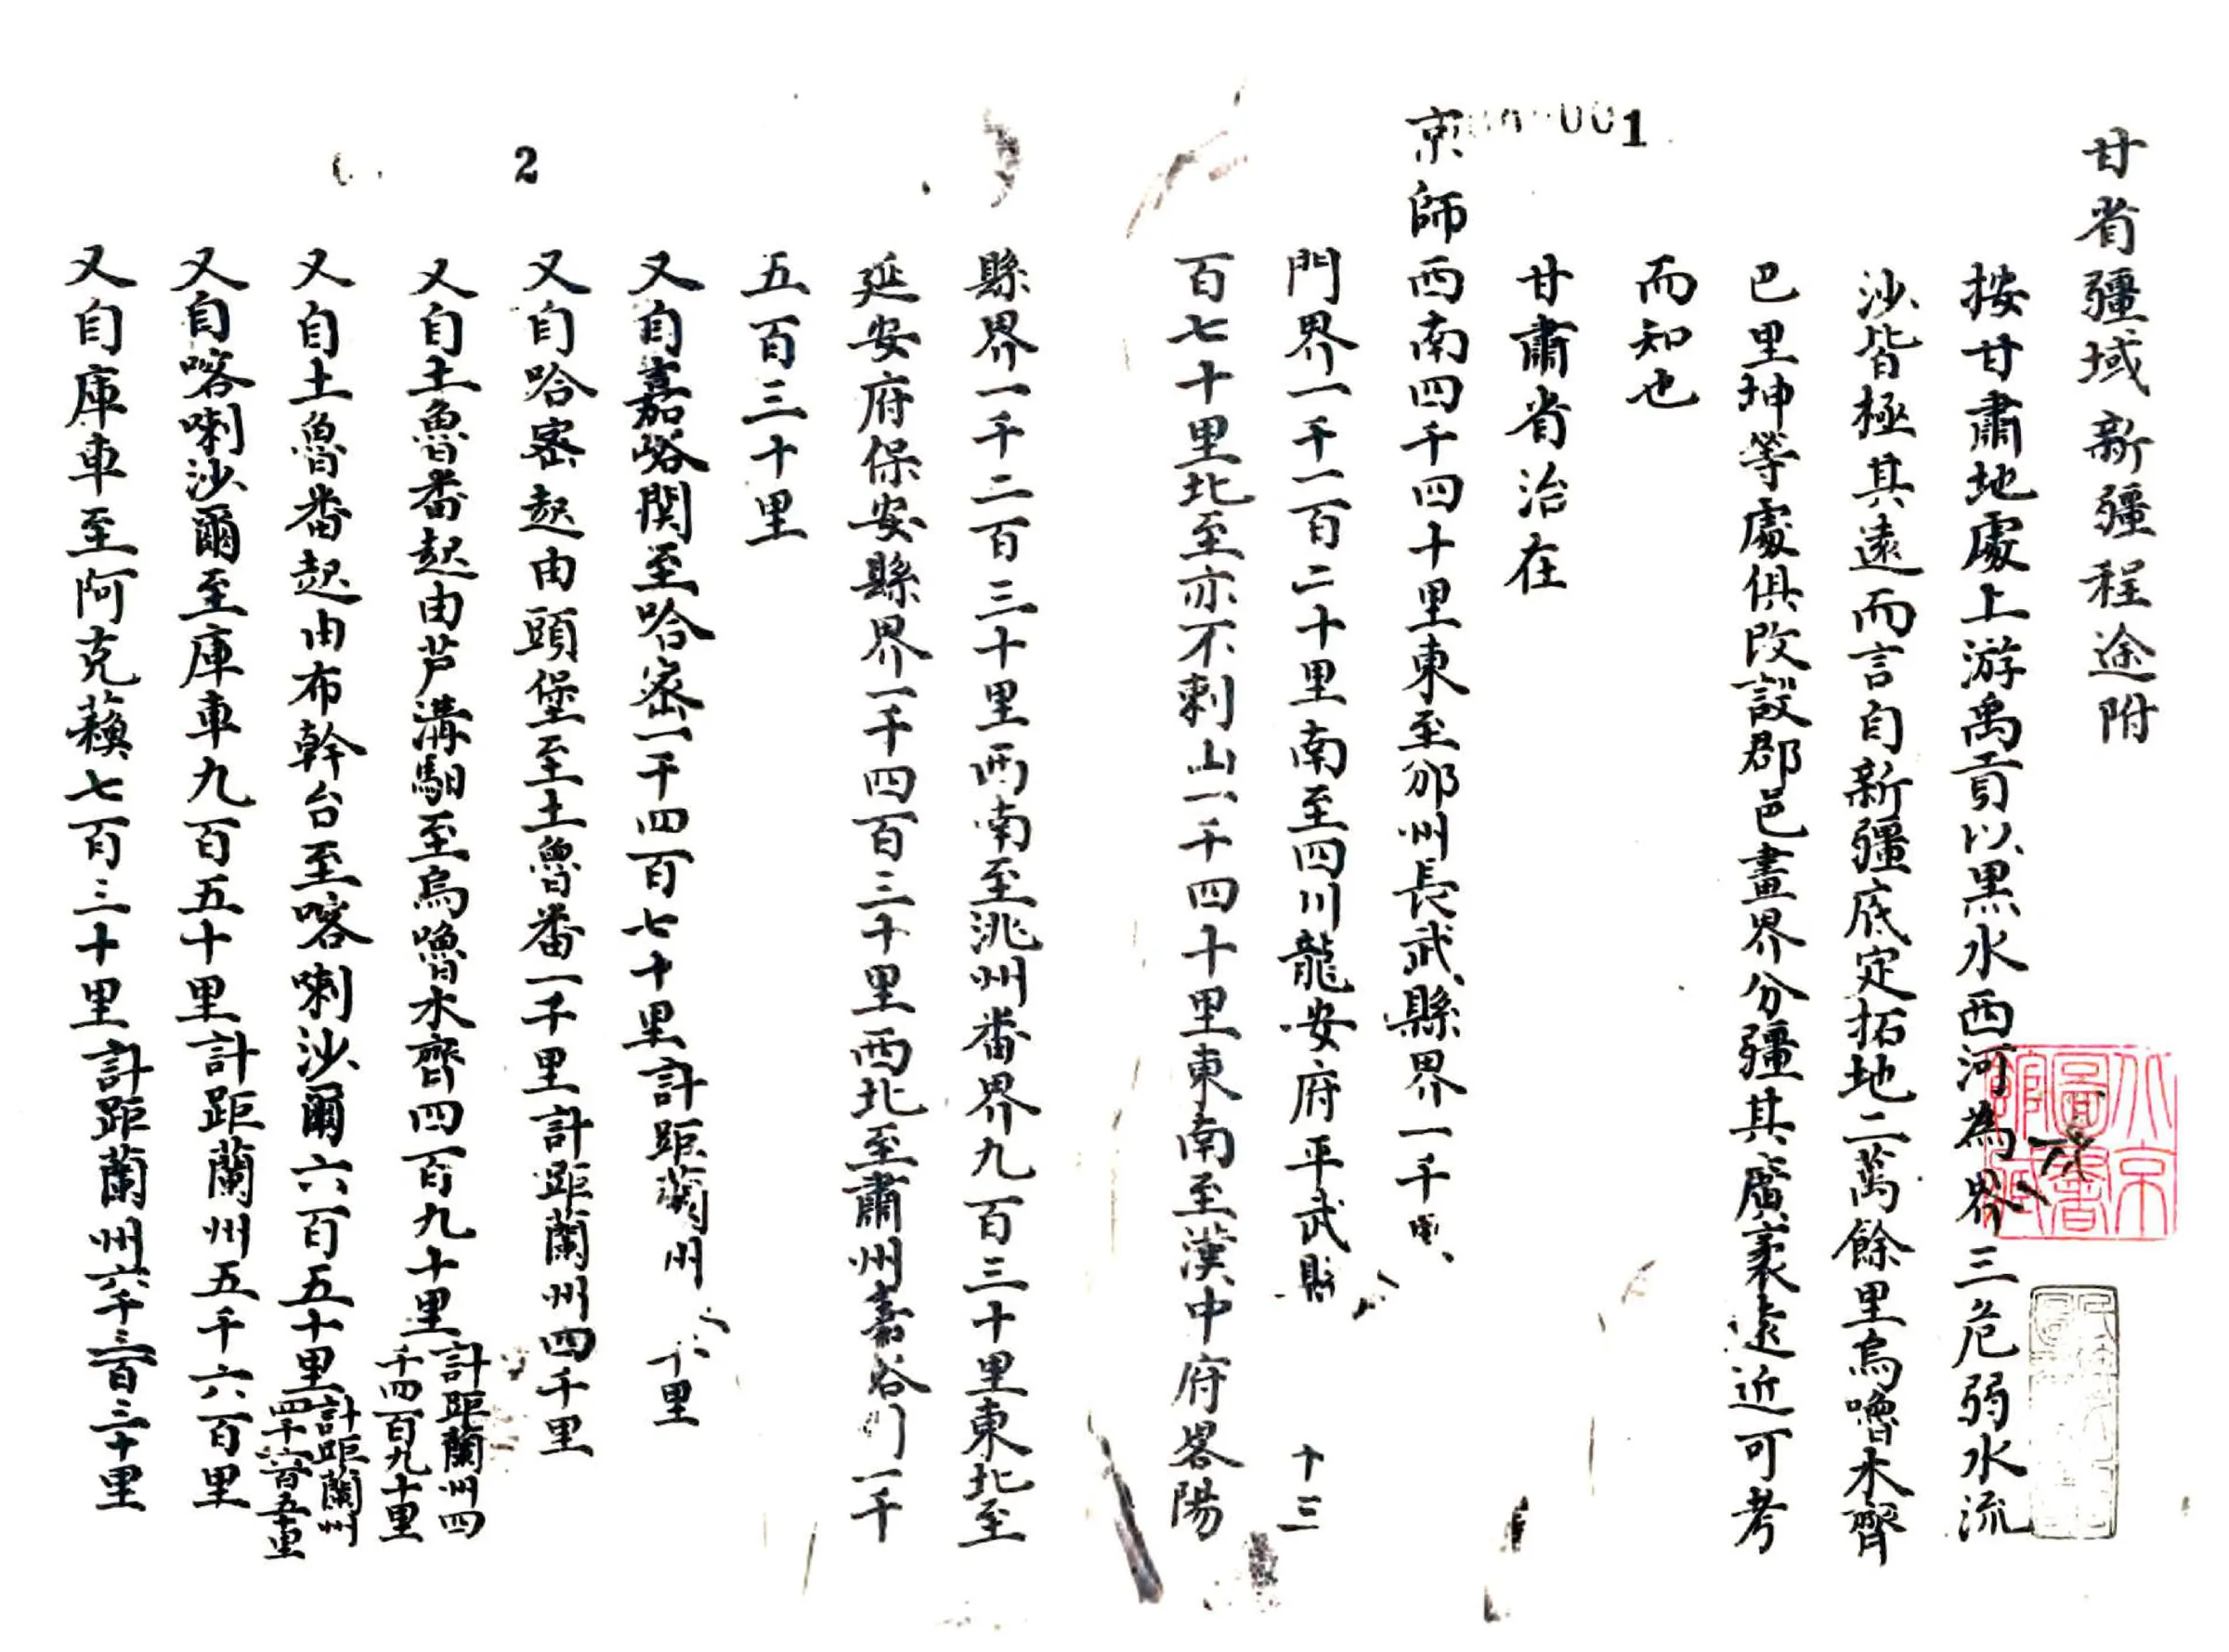 甘省疆域新疆程途附
按甘肅地處上游禹貢以黑水西河為界三危弱水流
沙皆極其遠而言自新疆底定拓地二萬餘里烏嚕木齊
巴里坤等處俱改設郡邑畫界分疆其廣袤遠近可考
而知也
甘肅省治在
京師西南四千四十里東至邠州長武縣界一千
門界一千一百二十里南至四川龍安府平武縣 十三
百七十里北至亦不剌山一千四十里東南至漢中府畧陽
縣界一千二百三十里西南至洮州番界九百三十里東北至
延安府保安縣界一千四百三十里西北至肅州嘉谷 一千
五百三十里
又自嘉峪関至哈宻一千四百七十里計距蘭州 里
又自哈宻起由頭堡至土魯番一千里計距蘭州四千里
又自土魯番起由芦溝馹至烏嚕木齊四百九十里計距蘭州四千四百九十里
又自土魯番起由布幹台至喀喇沙爾六百五十里計距蘭州四千六百五十里
又自喀喇沙爾至庫車九百五十里計距蘭州五千六百里
又自庫車至阿克蘓七百三十里計距蘭州六千三百三十里
001
2
北京圖書館藏